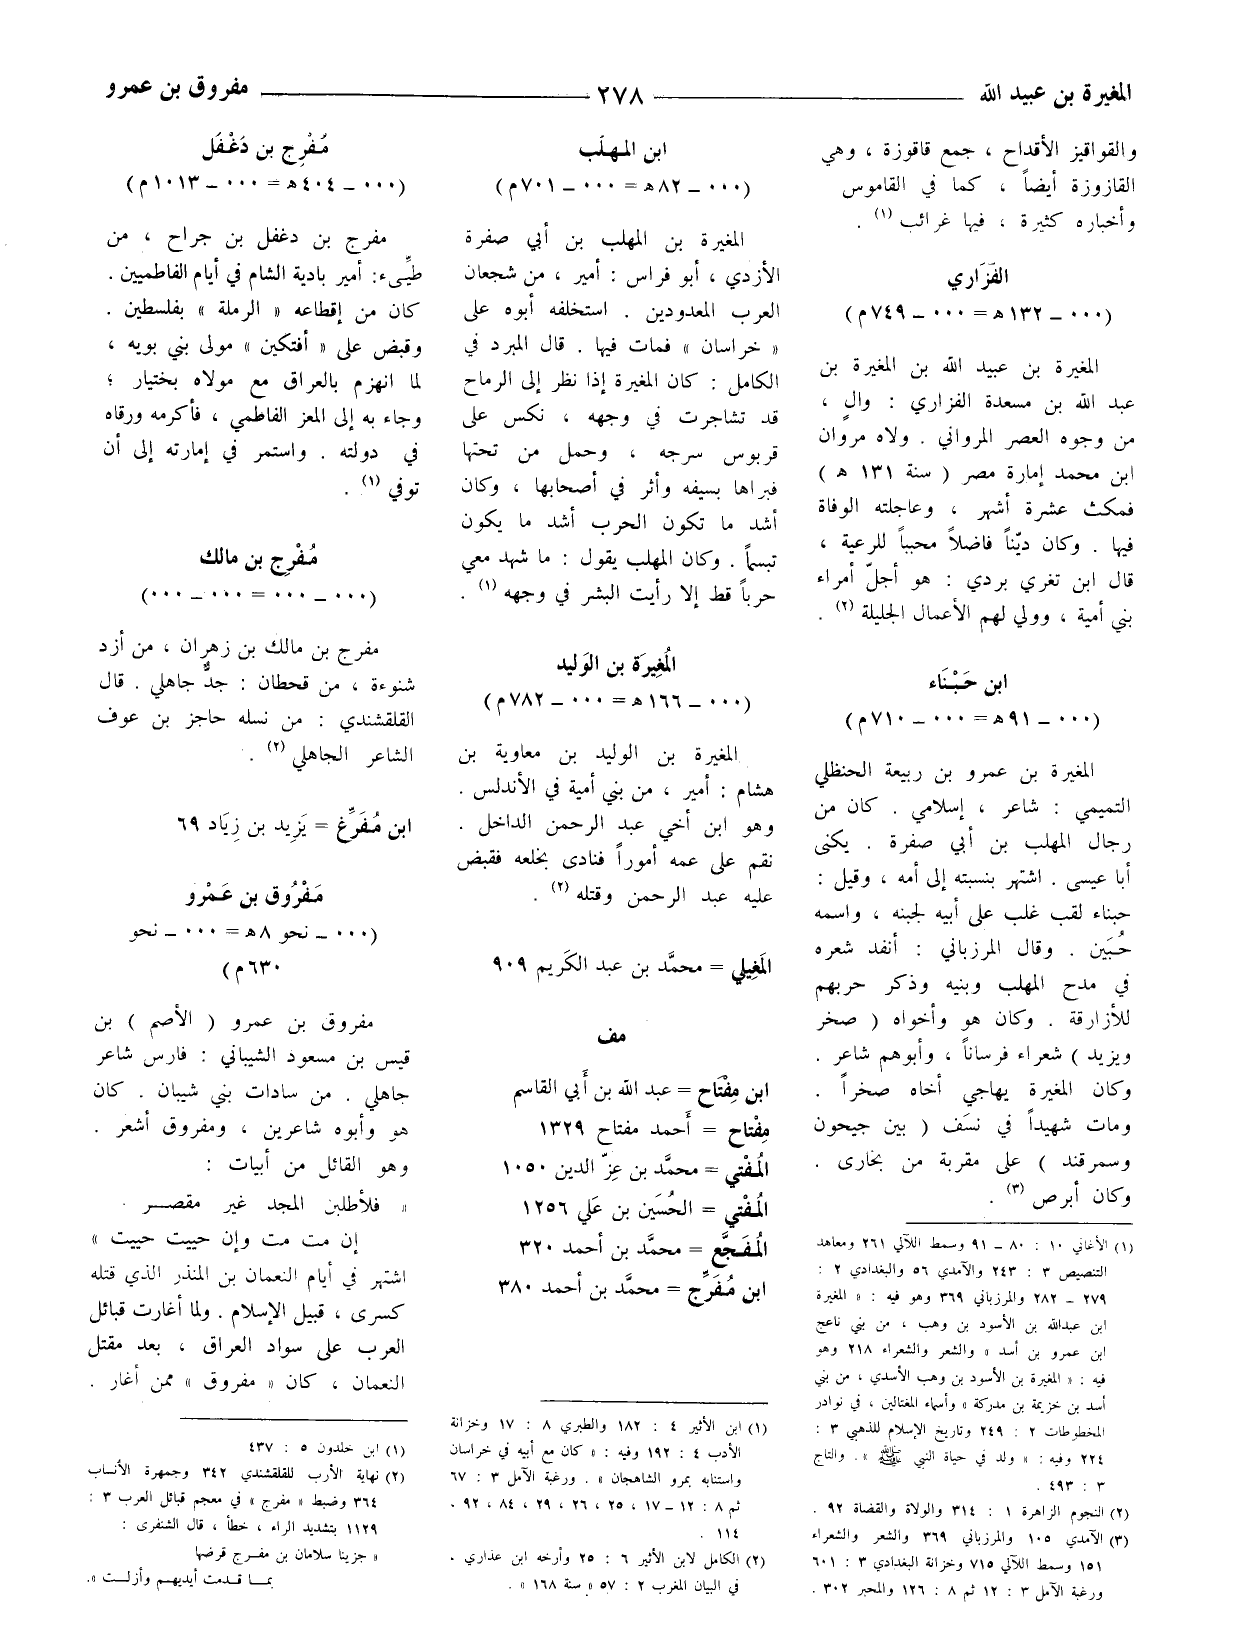 المغيرة بن عبيد الله
٢٧٨
مفروق بن عمرو
والقواقيز الأقداح ، جمع قاقوزة ، وهي
القازوزة أيضاً ، كما في القاموس
وأخباره كثيرة ، فيها غرائب (١) .
الفَزَاري
(٠٠٠ ــ ١٣٢ ه = ٠٠٠ ــ ٧٤٩ م)
المغيرة بن عبيد الله بن المغيرة بن
عبد الله بن مسعدة الفزاري : والٍ ،
من وجوه العصر المرواني . ولاه مروان
ابن محمد إمارة مصر ( سنة ١٣١ ه )
فمكث عشرة أشهر ، وعاجلته الوفاة
فيها . وكان ديّناً فاضلاً محبباً للرعية ،
قال ابن تغري بردي : هو أجلّ أمراء
بني أمية ، وولي لهم الأعمال الجليلة (٢) .
ابن حَبْنَاء
(٠٠٠ ــ ٩١ ه = ٠٠٠ ــ ٧١٠ م)
المغيرة بن عمرو بن ربيعة الحنظلي
التميمي : شاعر ، إسلامي . كان من
رجال المهلب بن أبي صفرة . يكنى
أبا عيسى . اشتهر بنسبته إلى أمه ، وقيل :
حبناء لقب غلب على أبيه لجبنه ، واسمه
حُبَين . وقال المرزباني : أنفد شعره
في مدح المهلب وبنيه وذكر حربهم
للأزارقة . وكان هو وأخواه ( صخر
ويزيد ) شعراء فرساناً ، وأبوهم شاعر .
وكان المغيرة يهاجي أخاه صخراً .
ومات شهيداً في نسَف ( بين جيحون
وسمرقند ) على مقربة من بخارى .
وكان أبرص (٣) .
(١) الأغاني ١٠ : ٨٠ ــ ٩١ وسمط اللآلي ٢٦١ ومعاهد
التنصيص ٣ : ٢٤٣ والآمدي ٥٦ والبغدادي ٢ :
٢٧٩ ــ ٢٨٢ والمرزباني ٣٦٩ وهو فيه : « المغيرة
ابن عبدالله بن الأسود بن وهب ، من بني ناعج
ابن عمرو بن أسد » والشعر والشعراء ٢١٨ وهو
فيه : « المغيرة بن الأسود بن وهب الأسدي ، من بني
أسد بن خزيمة بن مدركة » وأسماء المغتالين ، في نوادر
المخطوطات ٢ : ٢٤٩ وتاريخ الإسلام للذهبي ٣ :
٢٢٤ وفيه : « ولد في حياة النبي ﷺ » . والتاج
٣ : ٤٩٣ .
(٢) النجوم الزاهرة ١ : ٣١٤ والولاة والقضاة ٩٢ .
(٣) الآمدي ١٠٥ والمرزباني ٣٦٩ والشعر والشعراء
١٥١ وسمط اللآلي ٧١٥ وخزانة البغدادي ٣ : ٦٠١
ورغبة الآمل ٣ : ١٢ ثم ٨ : ١٢٦ والمحبر ٣٠٢ .
ابن المهلَب
(٠٠٠ ــ ٨٢ ه = ٠٠٠ ــ ٧٠١ م)
المغيرة بن المهلب بن أبي صفرة
الأزدي ، أبو فراس : أمير ، من شجعان
العرب المعدودين . استخلفه أبوه على
« خراسان » فمات فيها . قال المبرد في
الكامل : كان المغيرة إذا نظر إلى الرماح
قد تشاجرت في وجهه ، نكس على
قربوس سرجه ، وحمل من تحتها
فبراها بسيفه وأثر في أصحابها ، وكان
أشد ما تكون الحرب أشد ما يكون
تبسماً . وكان المهلب يقول : ما شهد معي
حرباً قط إلا رأيت البشر في وجهه (١) .
المُغِيرَة بن الوَليد
(٠٠٠ ــ ١٦٦ ه = ٠٠٠ ــ ٧٨٢ م)
المغيرة بن الوليد بن معاوية بن
هشام : أمير ، من بني أمية في الأندلس .
وهو ابن أخي عبد الرحمن الداخل .
نقم على عمه أموراً فنادى بخلعه فقبض
عليه عبد الرحمن وقتله (٢) .
المَغِيلي = محمَّد بن عبد الكَريم ٩٠٩
مف
ابن مِفْتَاح = عبد الله بن أَبي القاسم
مِفْتاح = أَحمد مفتاح ١٣٢٩
المُفْتي = محمَّد بن عِزّ الدين ١٠٥٠
المُفْتي = الحُسَين بن عَلي ١٢٥٦
المُفَجَّع = محمَّد بن أحمد ٣٢٠
ابن مُفَرِّج = محمَّد بن أحمد ٣٨٠
(١) ابن الأثير ٤ : ١٨٢ والطبري ٨ : ١٧ وخزانة
الأدب ٤ : ١٩٢ وفيه : « كان مع أبيه في خراسان
واستنابه بمرو الشاهجان » . ورغبة الآمل ٣ : ٦٧
ثم ٨ : ١٢ ــ ١٧ ، ٢٥ ، ٢٦ ، ٢٩ ، ٨٤ ، ٩٢ .
١١٤ .
(٢) الكامل لابن الأثير ٦ : ٢٥ وأرخه ابن عذاري ،
في البيان المغرب ٢ : ٥٧ « سنة ١٦٨ » .
مُفْرِج بن دَغْفَل
(٠٠٠ ــ ٤٠٤ ه = ٠٠٠ ــ ١٠١٣ م)
مفرج بن دغفل بن جراح ، من
طيِّء : أمير بادية الشام في أيام الفاطميين .
كان من إقطاعه « الرملة » بفلسطين .
وقبض على « أفتكين » مولى بني بويه ،
لما انهزم بالعراق مع مولاه بختيار ؛
وجاء به إلى المعز الفاطمي ، فأكرمه ورقاه
في دولته . واستمر في إمارته إلى أن
توفي (١) .
مُفْرِج بن مالك
(٠٠٠ ــ ٠٠٠ = ٠٠٠ ــ ٠٠٠)
مفرج بن مالك بن زهران ، من أزد
شنوءة ، من قحطان : جدٌّ جاهلي . قال
القلقشندي : من نسله حاجز بن عوف
الشاعر الجاهلي (٢) .
ابن مُفَرِّغ = يَزِيد بن زِيَاد ٦٩
مَفْرُوق بن عَمْرو
(٠٠٠ ــ نحو ٨ ه = ٠٠٠ ــ نحو
٦٣٠ م)
مفروق بن عمرو ( الأصم ) بن
قيس بن مسعود الشيباني : فارس شاعر
جاهلي . من سادات بني شيبان . كان
هو وأبوه شاعرين ، ومفروق أشعر .
وهو القائل من أبيات :
« فلأطلبن المجد غير مقصر .
إن مت مت وإن حييت حييت »
اشتهر في أيام النعمان بن المنذر الذي قتله
كسرى ، قبيل الإسلام . ولما أغارت قبائل
العرب على سواد العراق ، بعد مقتل
النعمان ، كان « مفروق » ممن أغار .
(١) ابن خلدون ٥ : ٤٣٧
(٢) نهاية الأرب للقلقشندي ٣٤٢ وجمهرة الأنساب
٣٦٤ وضبط « مفرج » في معجم قبائل العرب ٣ :
١١٢٩ بتشديد الراء ، خطأ ، قال الشنفرى :
« جزينا سلامان بن مفرج قرضها
بما قدمت أيديهم وأزلت ».